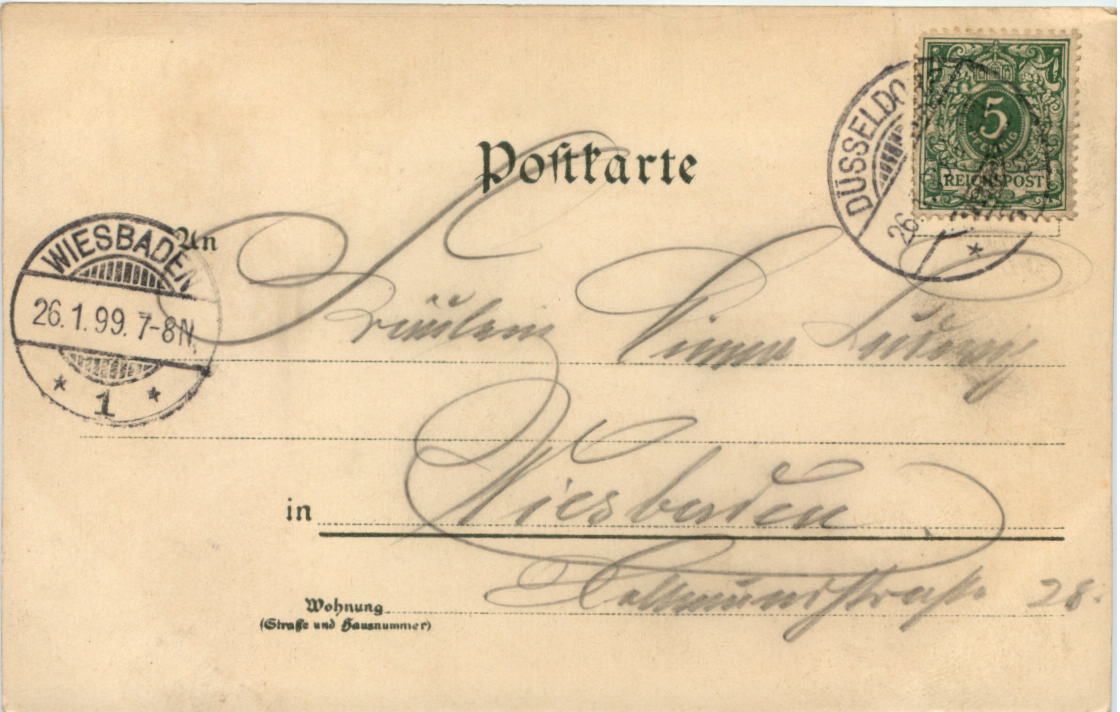 Postkarte
5
PFENNIG
REICHSPOST
DÜSSELDO
26.
WIESBADEN
26.1.99. 7-8N.
1
An
Fräulein
in Wiesbaden
Wohnung
(Straße und Hausnummer)
28.